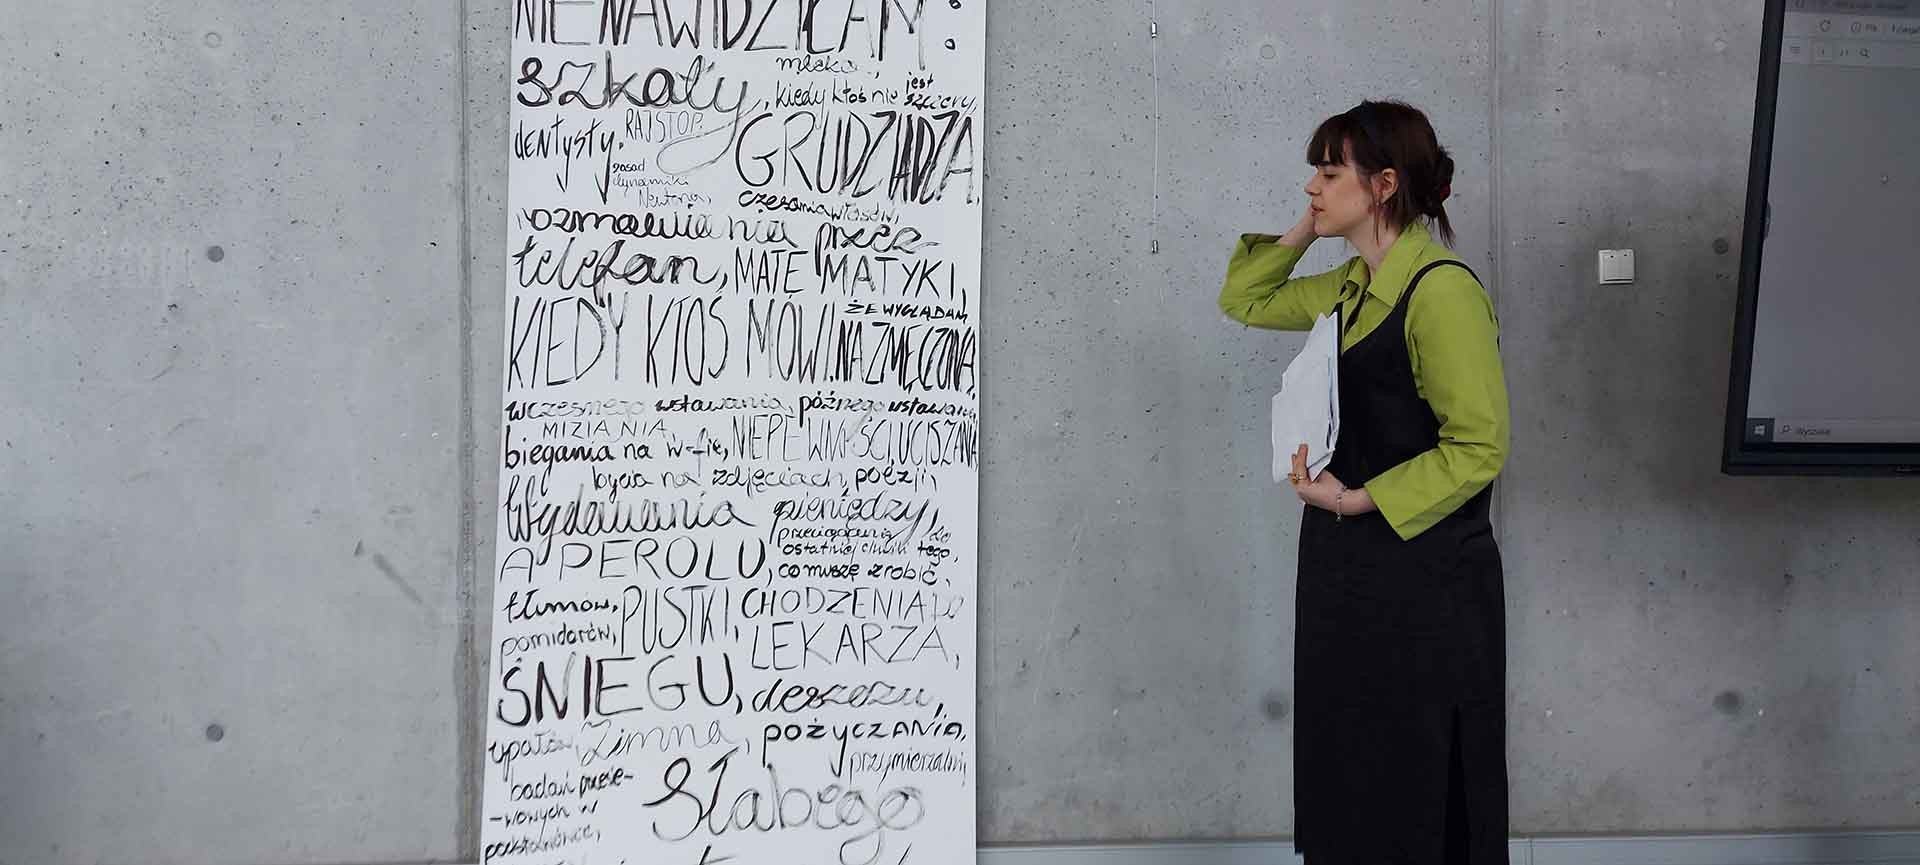 NIENAWIDZIŁAM:
szkoły, mleka,
kiedy ktoś nie jest szczery,
dentysty, RAJSTOP,
zasad dynamiki Newtona,
GRUDZIĄDZA,
czesania włosów,
rozmawiania przez
telefon, MATEMATYKI,
KIEDY KTOŚ MÓWI, ŻE WYGLĄDAM NA ZMĘCZONĄ,
wczesnego wstawania, późnego wstawania,
MIZIANIA
biegania na w-fie, NIEPEWNOŚCI, UCISZANIA
bycia na zdjęciach, poezji,
Wydawania pieniędzy,
przeciągania do
ostatniej chwili tego,
APEROLU, co muszę zrobić,
tłumów, PUSTKI, CHODZENIA do
pomidorów, LEKARZA,
ŚNIEGU, deszczu,
upałów, zimna, pożyczania,
przymierzalni,
badań przesie-
-wowych w
podstawówce,
Słabego
Wyszukaj